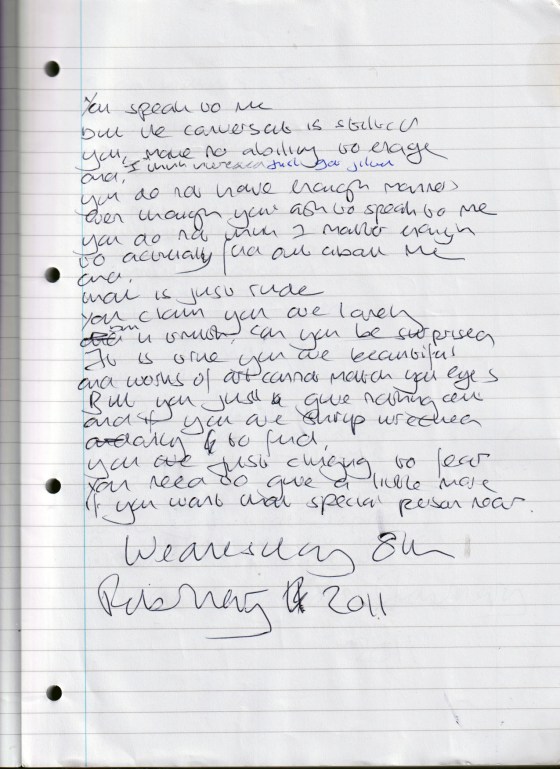 You speak to me
but the conversation is stilted
you, have no ability to engage
I think there can just be silence
and,
you do not have enough manners
Even though you ask to speak to me
you do not think I matter enough
to actually find out about me
and,
that is just rude
You claim you are lonely
in truth, can you be surprised
It is true you are beautiful
and works of art cannot match you eyes
But you just give nothing
and if you are wretched
to find,
you are just clinging to fear
You need to give a little more
if you want that special person near.
Wednesday 8th
February 2011